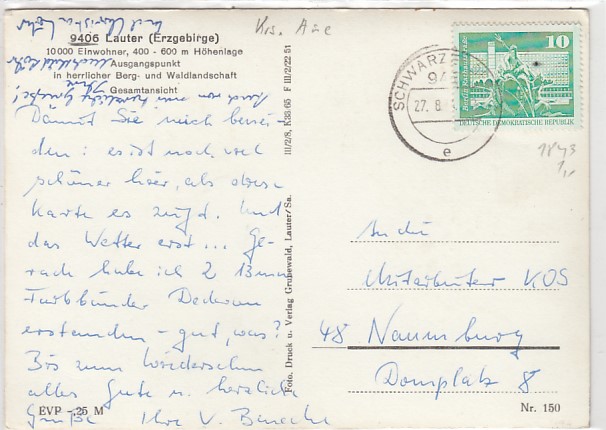 Krs. Aue
9406 Lauter (Erzgebirge)
10000 Einwohner, 400 - 600 m Höhenlage
Ausgangspunkt
in herrlicher Berg- und Waldlandschaft
Gesamtansicht
auch von uns herzliche Grüße!
Damit Sie mich benei-
den: es ist noch viel
schöner hier, als diese
Karte es zeigt. Und
das Wetter erst... Ge-
rade habe ich 2
Farbbänder
erstanden - gut, was?
Bis zum Wiedersehen
alles Gute u. herzliche
Grüße Ihre V.
EVP -,25 M
III/2/8, K33/65 F III/2/22 51
Foto, Druck u. Verlag Grunewald, Lauter/Sa.
SCHWARZE
27. 8.
e
10
DEUTSCHE DEMOKRATISCHE REPUBLIK
1843
An die
Mitarbeiter KOS
48 Naumburg
Domplatz 8
Nr. 150